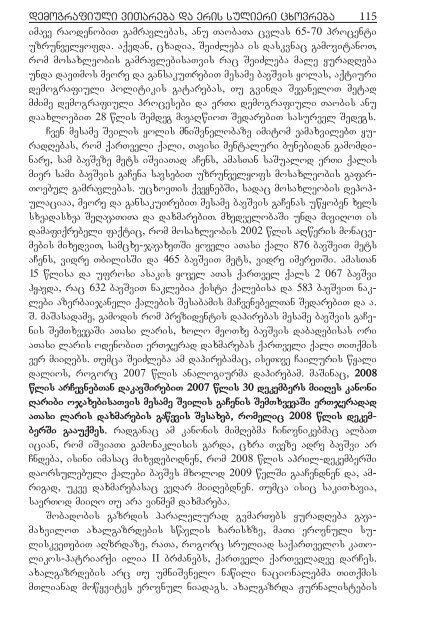 დემოგრაფიული ვითარება და ერის სულიერი ცხოვრება 115
იმავე რაოდენობით გამრავლებას, ანუ თაობათა ცვლას 65-70 პროცენტი
უზრუნველყოფდა. აქედან, ცხადია, შეიძლება ის დასკვნაც გამოვიტანოთ,
რომ მოსახლეობის გამრავლებისათვის რაც შეიძლება მალე ყურადღება
უნდა დაეთმოს მეორე და განსაკუთრებით მესამე ბავშვის ყოლას, აქტიური
დემოგრაფიული პოლიტიკის გატარებას, თუ გვინდა შევანელოთ მეტად
მძიმე დემოგრაფიული პროცესები და ერთი დემოგრაფიული თაობის ანუ
დაახლოებით 28 წლის შემდეგ მივაღწიოთ შედარებით სასურველ შედეგს.
ჩვენ მესამე შვილის ყოლის მნიშვნელობაზე იმიტომ ვამახვილებთ ყუ-
რადღებას, რომ ქართველი ქალი, თავისი მენტალური ბუნებიდან გამომდი-
ნარე, სამ ბავშვზე მეტს იშვიათად აჩენს, ამასთან საშუალოდ ერთი ქალის
მიერ სამი ბავშვის გაჩენა სავსებით უზრუნველყოფს მოსახლეობის გაფარ-
თოებულ გამრავლებას. უცხოეთის ქვეყნებში, სადაც მოსახლეობის დეპოპ-
ულაციაა, მეორე და განსაკუთრებით მესამე ბავშვის გაჩენას უწყობენ ხელს
სხვადასხვა შეღავათითა და დახმარებით. მხედველობაში უნდა მივიღოთ ის
დამაფიქრებელი ფაქტიც, რომ მოსახლეობის 2002 წლის აღწერის მონაცე-
მების მიხედვით, სამცხე-ჯავახეთში ყოველი ათასი ქალი 876 ბავშვით მეტს
აჩენს, ვიდრე თბილისში და 465 ბავშვით მეტს, ვიდრე იმერეთში. ამასთან
15 წლისა და უფროსი ასაკის ყოველ ათას ქართველ ქალს 2 067 ბავშვი
ჰყავდა, რაც 632 ბავშვით ნაკლებია ქისტი ქალებისა და 583 ბავშვით ნაკ-
ლები აზერბაიჯანელი ქალების შესაბამის მაჩვენებელთან შედარებით და ა.
შ. მაშასადამე, გამოდის რომ პრეზიდენტის დაპირებას მესამე ბავშვის გაჩე-
ნის შემთხვევაში ათასი ლარის, ხოლო მეოთხე ბავშვის დაბადებისას ორი
ათასი ლარის ოდენობით ერთჯერად დახმარებას ქართველი ქალი თითქმის
ვერ მიიღებს. თუმცა შეიძლება ამ დაპირებამაც, ისეთივე ჩაილურის წყალი
დალიოს, როგორც 2007 წლის ანალოგიურმა დაპირებამ. მაშინაც, 2008
წლის არჩევნებთან დაკავშირებით 2007 წლის 30 დეკემბერს მიიღეს კანონი
ღარიბი ოჯახებისათვის მესამე შვილის გაჩენის შემთხვევაში ერთჯერადად
ათასი ლარის დახმარების გაწევის შესახებ, რომელიც 2008 წლის დეკემ-
ბერში გააუქმეს. რადგანაც ამ კანონის მიმღებმა ჩინოვნიკებმაც ალბათ
იციან, რომ იშვიათი გამონაკლისის გარდა, ცხრა თვეზე ადრე ბავშვი არ
ჩნდება, ისინი იმასაც მიხვდებოდნენ, რომ 2008 წლის აპრილ-დეკემბერში
დაორსულებული ქალები ბავშვს მხოლოდ 2009 წელში გააჩენდნენ და, ამ-
რიგად, უკვე დახმარებასაც ვეღარ მიიღებდნენ. თუმცა ისიც საკითხავია,
საერთოდ მიიღო თუ არა ვინმემ დახმარება.
შობადობის გაზრდის პარალელურად გვმართებს ყურადღება გავა-
მახვილოთ ახალგაზრდების სწავლის ხარისხზე, მათი ეროვნული სუ-
ლისკვეთებით აღზრდაზე, რათა, როგორც სრულიად საქართველოს კათო-
ლიკოს-პატრიარქი ილია II ბრძანებს, ქართველი ქართველადვე დარჩეს.
ახალგაზრდების არც თუ უმნიშვნელო ნაწილი ნაციონალებმა თითქმის
მთლიანად მოწყვიტეს ეროვნულ ნიადაგს. ახალგაზრდა ჟურნალისტების